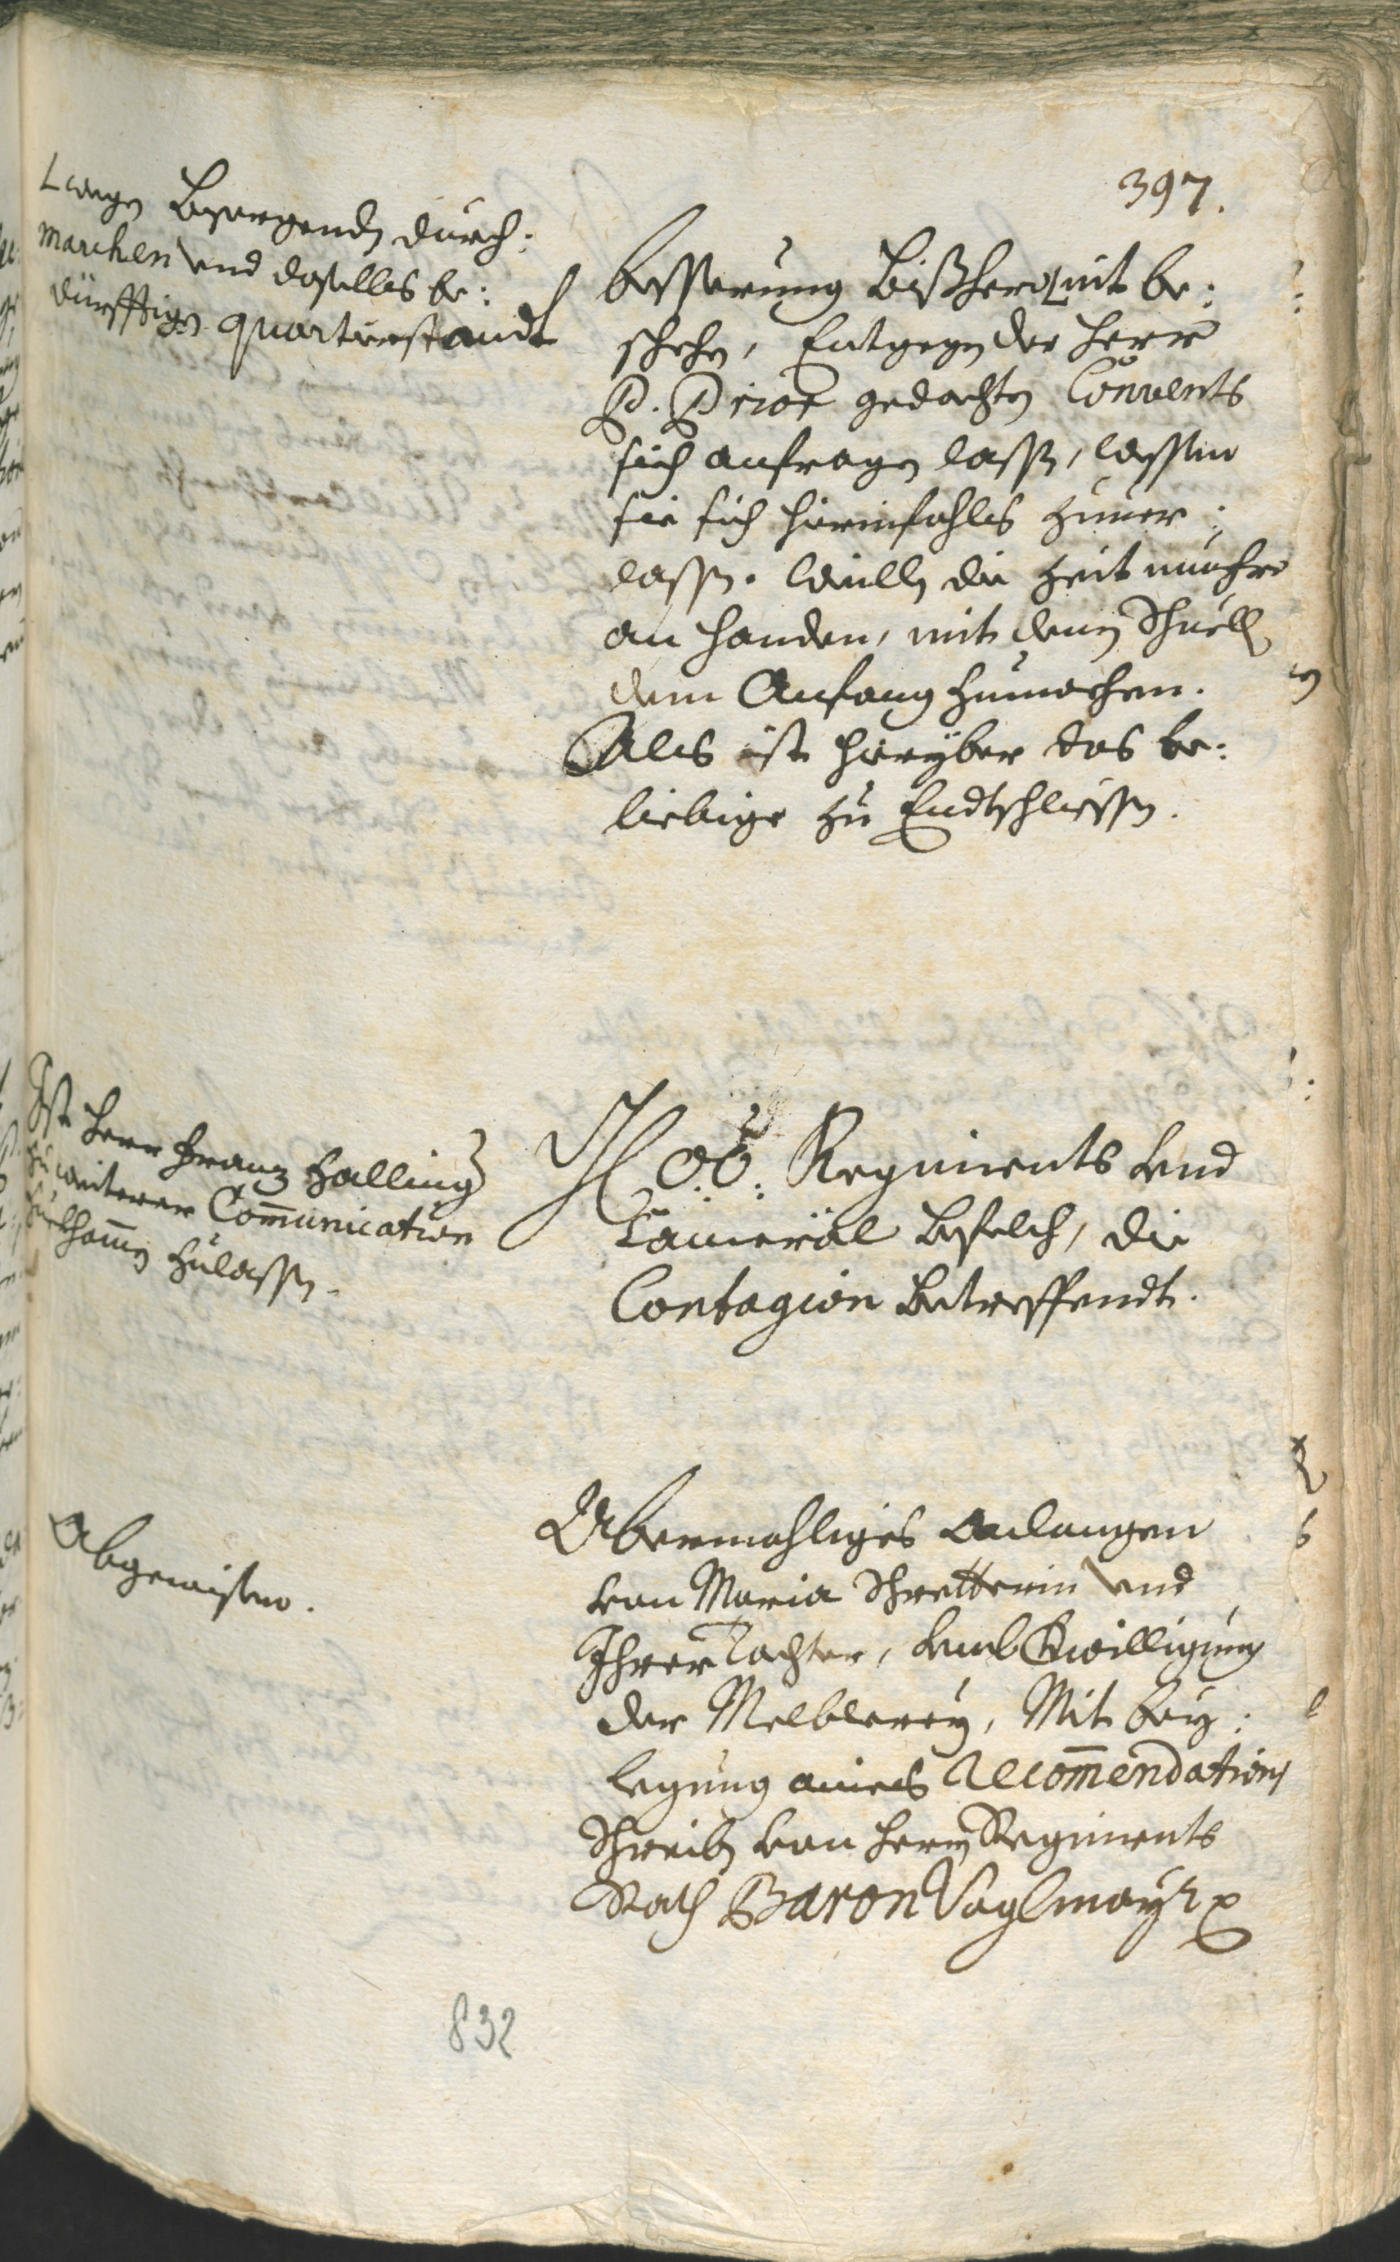 397.
wegen besorgenden durch:
marchen vnd daselbs be:
dürfftigen quartierstandt
besserung bißhero nit be:
schehen, Entgegen der Herr
P. Prior gedachten Convents
sich anfragen lassen, lassen
sie sich hierinfahls zuuer:
lassen. weillen die Zeit nunhero
an handen, mit denen Schuell
dem Anfang zumachen.
Als ist hieryber das be:
liebige zu Endtschliessen.
Ist Herr Franz Halling
zu weiterer Com̄unication
zuelassen.
OÖ: Regiments vnd
Cameral befelch, die
Contagion betreffendt.
Abgewisen.
Abermahliges anlangen
von Maria Schretterin vnd
Ihrer Tochter, vmb Bewilligung
der Melblerey, Mit bey:
legung aines Recom̄endations
Schreiben von Herrn Regiments
Rath Baron Voglmayr
832